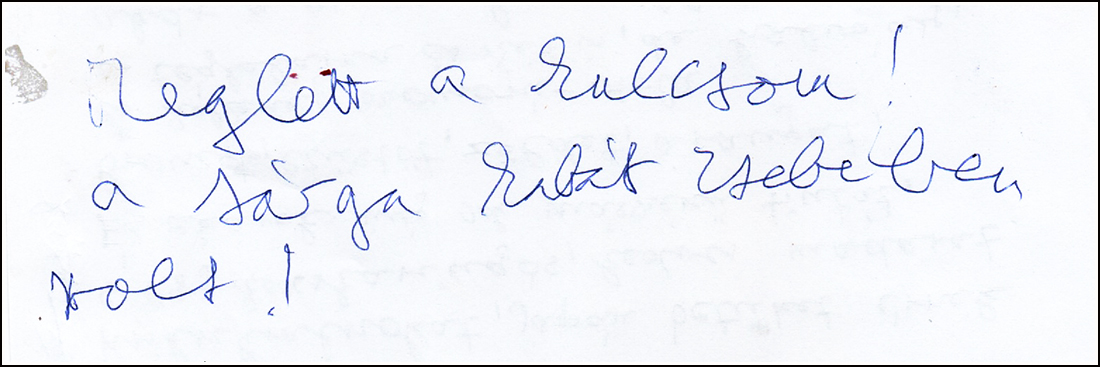 Meglett a kulcsom!
a sárga kabát zsebében
volt!